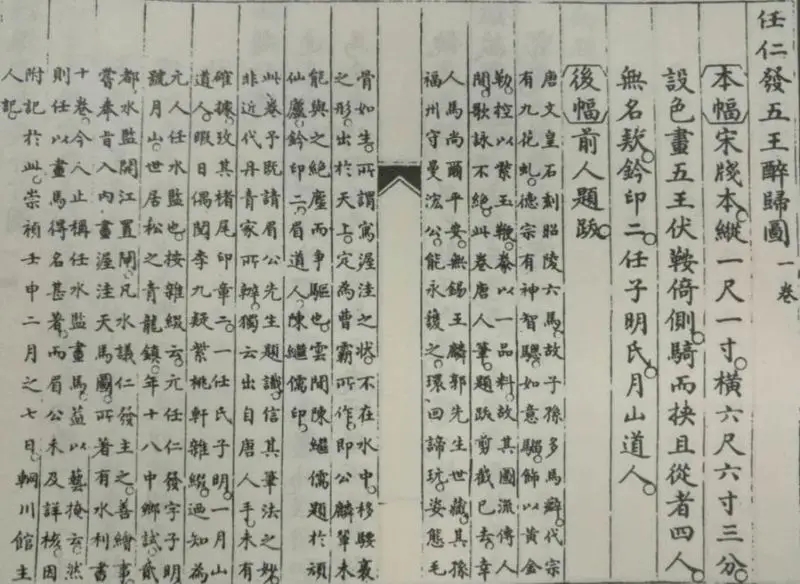 任仁發五王醉歸圖一卷
本幅宋牋本縱一尺一寸橫六尺六寸三分
設色畫五王伏鞍倚側騎而挾且從者四人
無名款鈐印二任子明氏月山道人
後幅前人題跋
唐文皇石刻昭陵六馬故子孫多馬癖代宗
有九花虬德宗有神智驄如意騮飾以黃金
勒控以紫玉鞭豢以一品料故其國流傳人
間歌詠不絕此卷唐人筆題跋剪截已去幸
人馬尚爾平安無錫王麟郭先生世藏其孫
福州守曼澐公能永護之環回諦玩姿態毛
骨如生所謂寫渥洼之狀不在水中移騕褭
之形出於天上定為曹霸所作即公麟筆未
能與之絕塵而爭驅也雲間陳繼儒題於頑
仙廬鈐印二眉道人陳繼儒印
此卷予既請眉公先生題識信其筆法之妙
非近代丹青家所辦獨云出自唐人手未有
確據攷其楮尾印章二一任氏子明一月山
道人暇日偶閱李九疑紫桃軒雜綴迺知為
元人任水監也按雜綴云元任仁發字子明
號月山世居松之青龍鎮年十八中鄉試貳
都水監開江置閘凡水議仁發主之善繪事
嘗奉旨入內畫渥洼天馬圖所著有水利書
十卷今人止稱任水監畫馬葢以藝掩云然
則任以畫馬得名甚著而眉公未及詳核因
附記於此崇禎壬申二月之七日輞川館主
人記